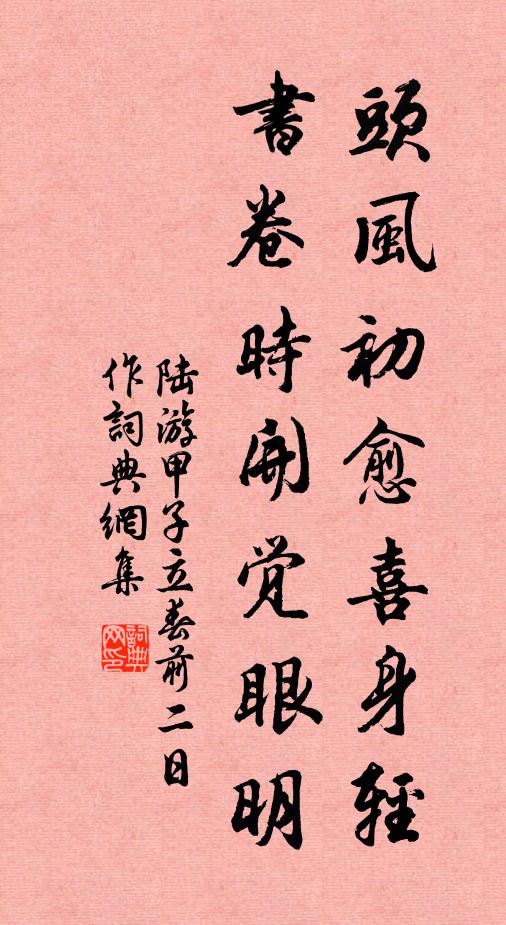 頭風初愈喜身輕
書卷時開覺眼明
陸游甲子立春前二日
作詞典網集
詞典网印